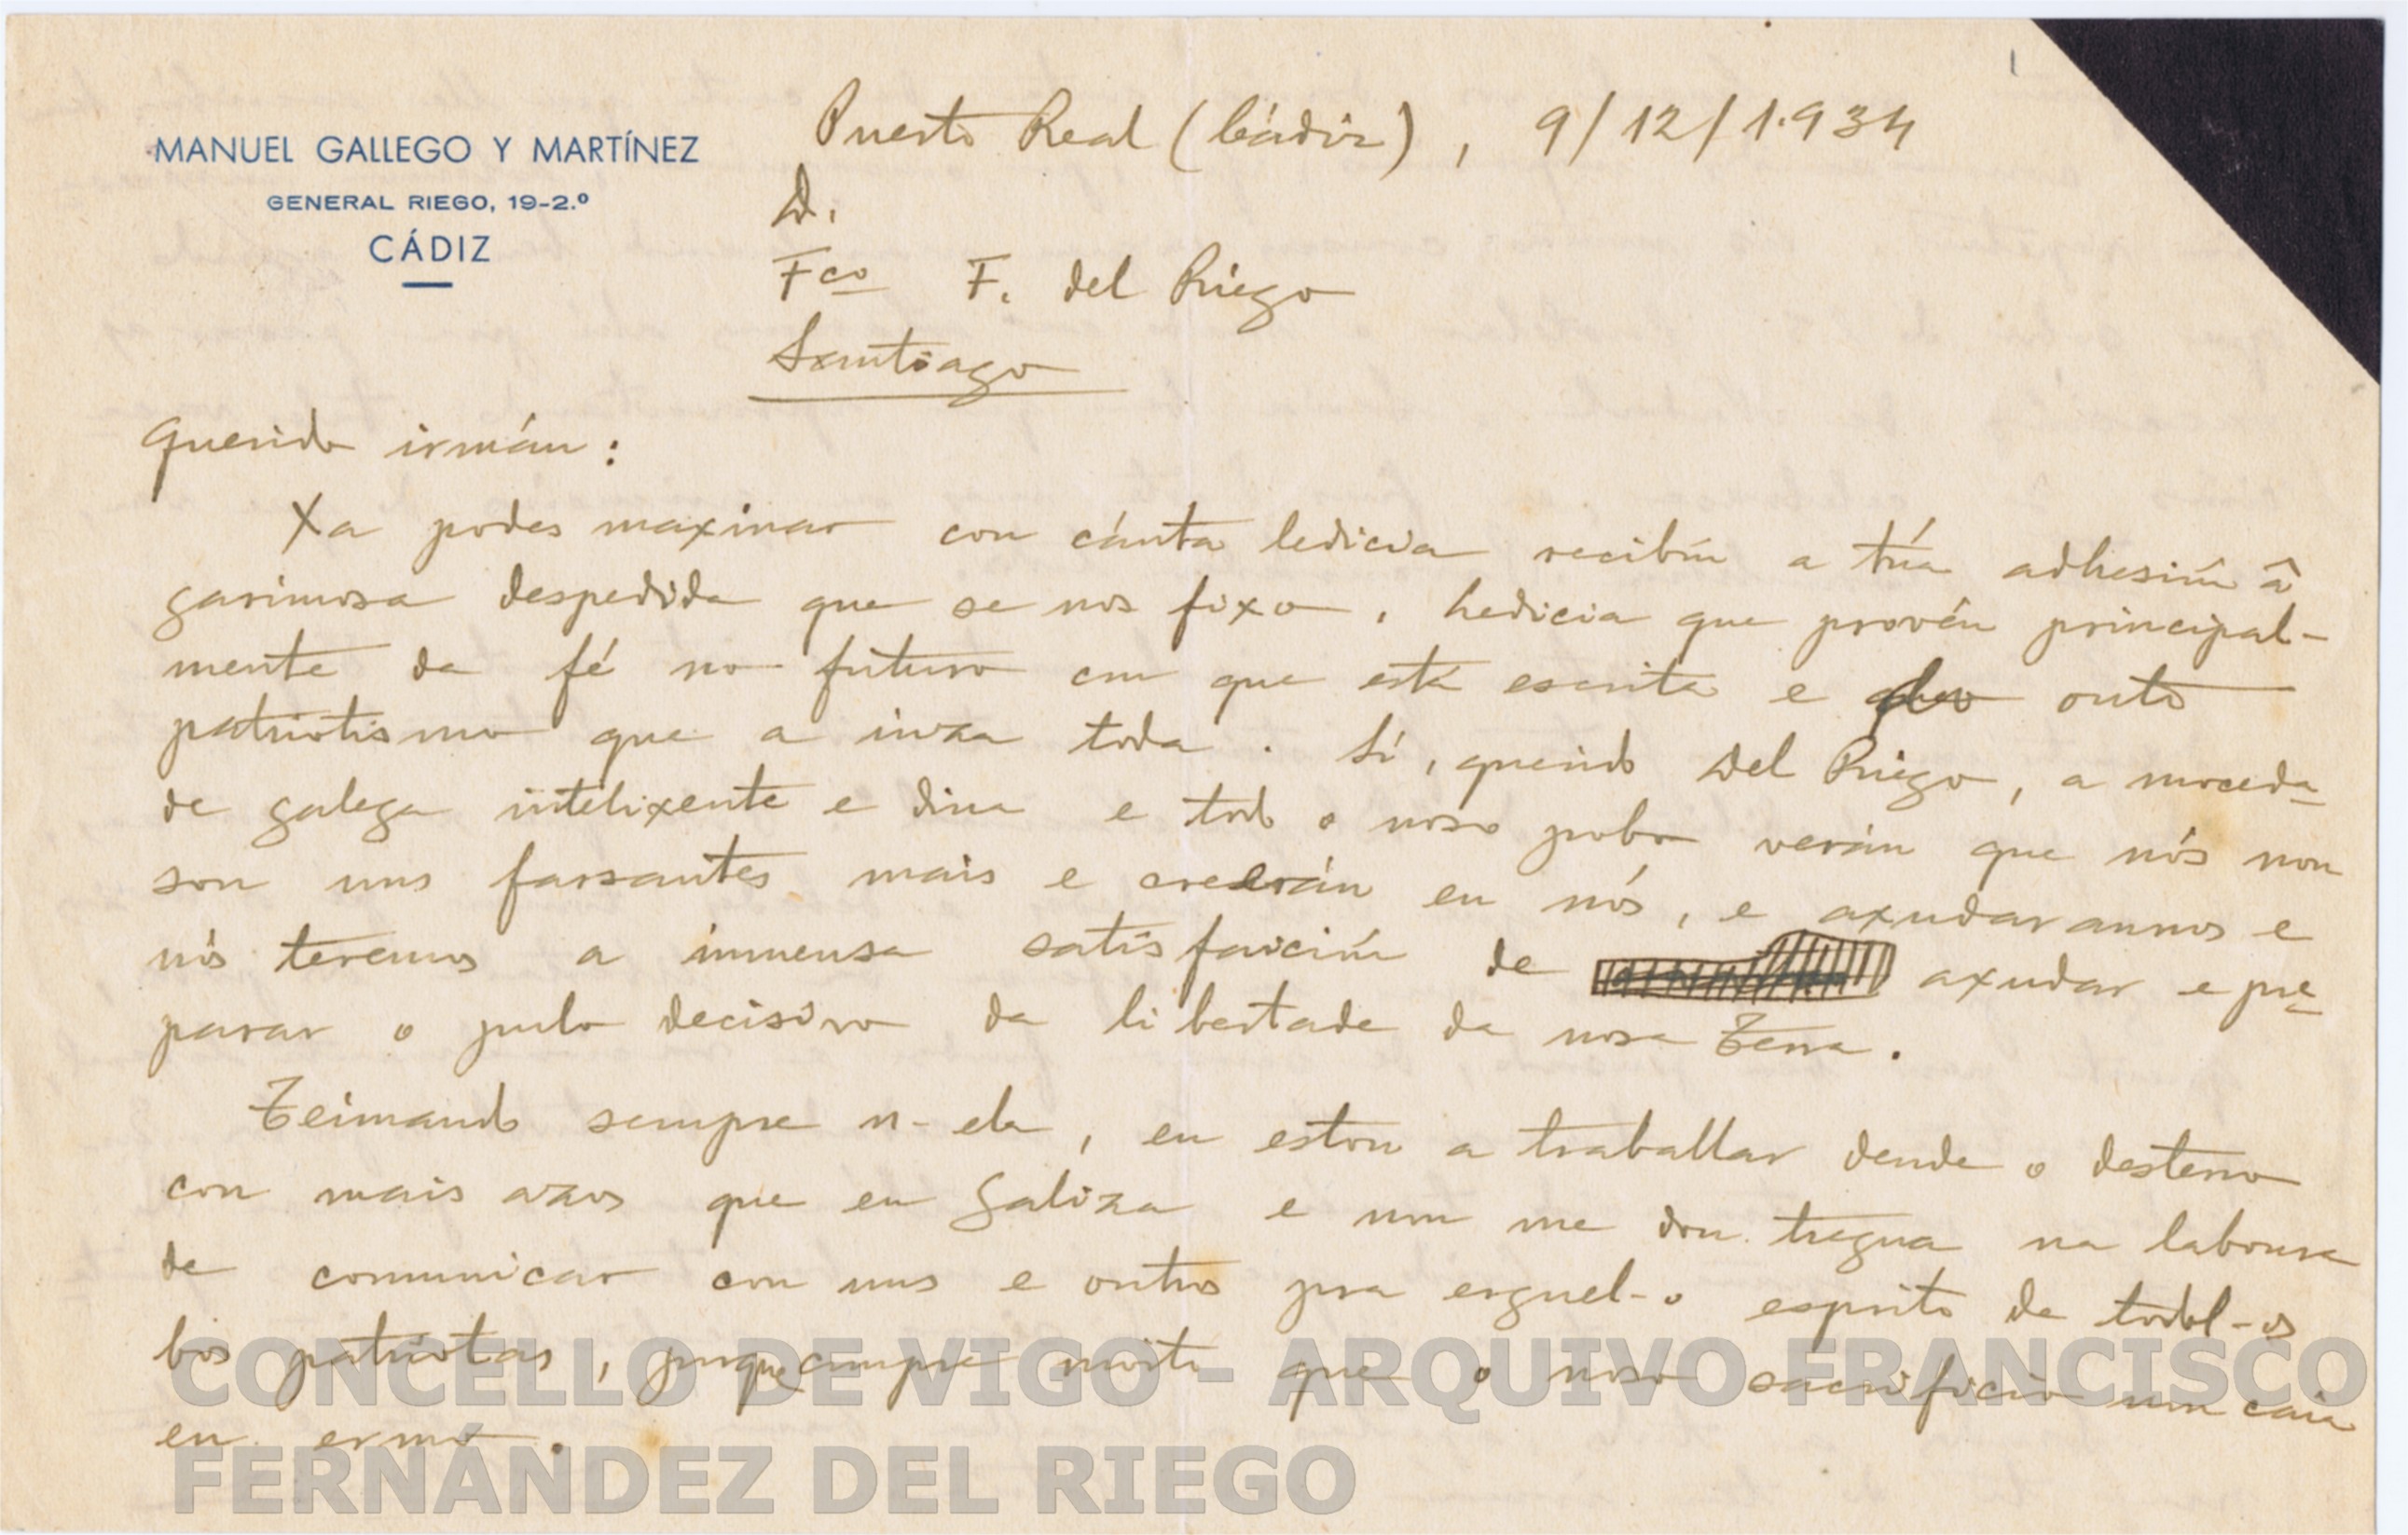 MANUEL GALLEGO Y MARTÍNEZ
GENERAL RIEGO, 19-2.º
CÁDIZ
Puerto Real (Cádiz), 9/12/1.934
D.
Fco F. del Riego
Santiago
Querido irmán:
Xa podes maxinar con cánta ledicia recibín a túa adhesión â
garimosa despedida que se nos fixo. Ledicia que provén principal-
mente da fé no futuro em que está escrita e do outo
patriotismo que a inza toda. Sí, querido Del Riego, a moceda-
de galega intelixente e dina e todo o noso pobo verán que nós non
son uns farsantes mais e creerán en nós, e axudarannos e
nós teremos a inmensa satisfaición de axudar e pre-
parar o pulo decisivo da libertade da nosa Terra.
Teimando sempre n-ela, eu estou a traballar dende o desterro
con mais azos que en Galiza e non me dou tregua na laboura
de comunicar con uns e outros pra erguel-o esprito de todol-os
bos patriotas, porque cumpre moito que o noso sacrificio non caia
en ermo.
CONCELLO DE VIGO - ARQUIVO FRANCISCO
FERNÁNDEZ DEL RIEGO